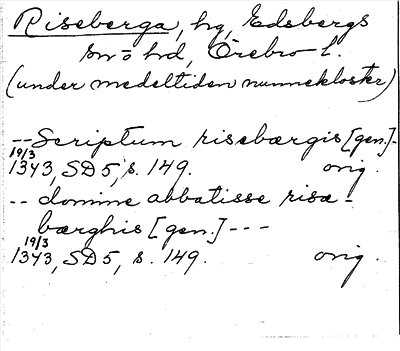 Riseberga, hg, Edsbergs
sn o hd, Örebro l.
(under medeltiden nunnekloster)
-- Scriptum risebærgis [gen.] -
19/3
1343, SD 5, s. 149. orig.
-- domine abbatisse risæ-
bærghis [gen.] ---
19/3
1343, SD 5, s. 149. orig.